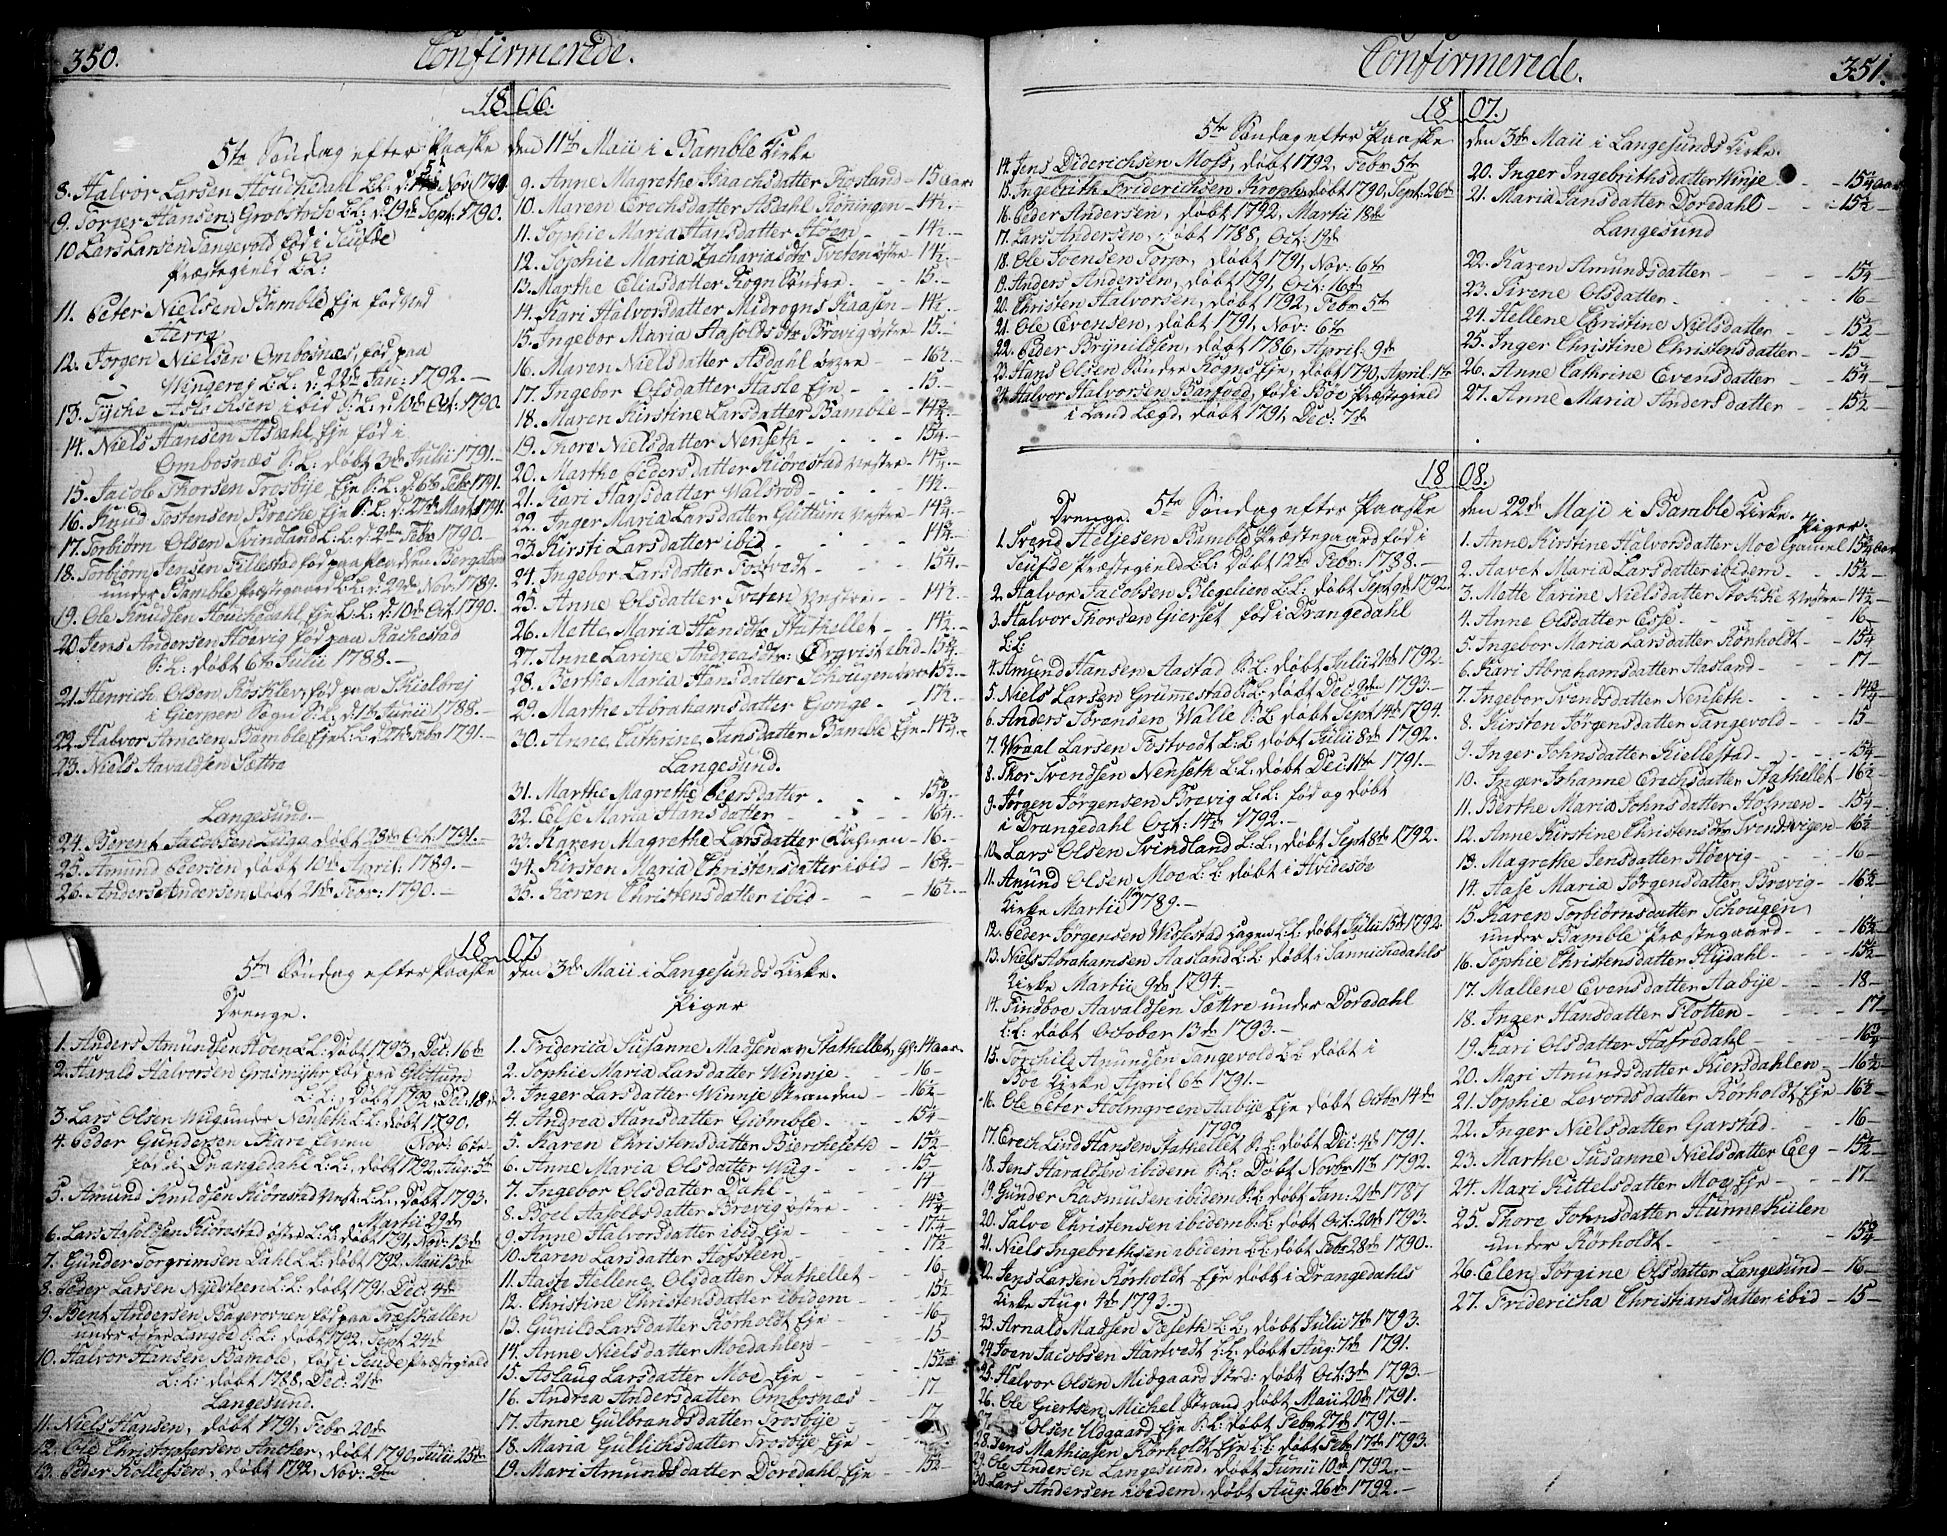 350.
Confirmerede.
1806.
5te Søndag efter Paaske
8. Halvor Larsen Houchedahl L:L: d. Nov: 1790
9. Torger Hansen Grobstoch L:L: d. 19de Sept: 1790.
10 Lars Larsen Tangevold fød i Seufde
Præstegield L:L:
11. Peter Nielsen Bamble Eje
12. Jørgen Nielsen Ombosnæs, fød paa
L:L: d: 22de Jan: 1792.-
13. Tyche Aslachsen ibid S:L: d. 10de Oct: 1790.
14. Niels Hansen Asdahl Eje fød i
Ombosnæs S:L: døbt 3de Julii 1791.-
15. Jacob Thorsen Trosbye Eje S:L: d: 6te Febr 1791.
16. Knud Tostensen Brache Eje S:L: d: 27de Mart: 1791
17. Torbiørn Olsen Svindland L:L: d: 2den Febr 1790.-
18. Torbiørn Jensen Fillestad fød paa
under Bamble Præstegaard L:L: d: 22de Nov: 1789.
19. Ole Knudsen Houchedahl Eje L:L: d: 10de Oct: 1790.
20. Jens Andersen Hoevig fød paa Rachestad
S:L: døbt 6te Julii 1788.-
21. Henrich Olsen Røsklev, fød paa
i Gierpen Sogn S:L: d. 1te Junii 1788.-
22. Halvor Arnesen Bamble Eje L:L: d: 27de Febr 1791.-
23. Niels Aavaldsen Sættre
Langesund.-
24. Berent Jacobsen døbt 28de Oct: 1791.-
25. Amund Peersen døbt 10de April: 1789.-
26. Anders Andersen døbt 21de Febr: 1790.-
den 11te Maii i Bamble Kirke
9. Anne Magrethe Isaachsdatter Rostand - 15 aar
10. Maren Erechsdatter Asdahl - 14½.-
11. Sophie Maria Hansdatter Hoen - 14½.-
12. Sophie Maria Zachariasdtr Tveten østre - 14½.-
13. Marthe Eliasdatter Rogn Søndre - 15.-
14. Kari Halvorsdatter Midrogns Kaasen - 14½.-
15. Ingebor Maria Aasoldsdtr Brøvig østre - 15.-
16. Maren Nielsdatter Asdahl øvre - 16½.-
17. Ingebor Olsdatter Hasle Eje - 15.-
18. Maren Kirstine Larsdatter Bamble - 14¾.-
19. Thore Nielsdatter Nenseth - 15¼.-
20. Marthe Pedersdatter Kiørestad Vestre - 14¼.-
21. Kari Hansdatter Walsrød - 14½.-
22. Inger Maria Larsdatter Guttum Vestre - 14¾.-
23. Kirsti Larsdatter ibid - 14¾.-
24. Ingebor Larsdatter Tostvedt - 15¼.-
25. Anne Olsdatter Tveten Vestre - 14½.-
26. Mette Maria Hansdtr Stathellet - 14½.-
27. Anne Larine Andreasdtr: Ørqvist ibid - 15¾.-
28. Berthe Maria Hansdatter Schougen øvre 15½.-
29. Marthe Abrahamsdatter Gonge - 17½.-
30. Anne Cathrine Jansdatter Bamble Eje 14¾.-
Langesund.
31. Marthe Magrethe Peersdatter - 15¾.-
32. Else Maria Hansdatter - 16¼.-
33. Karen Magrethe Larsdatter - 16.-
34. Kirsten Maria Christensdatter ibid - 16¼.-
35. Karen Christensdatter ibid - 16½.-
1807
5te Søndag efter Paaske den 3de Maii i Langesunds Kirke.
Drenge.
1. Anders Amundsen Hoen L:L: døbt 1793, Dec: 16de
2. Harald Halvorsen Grasmyhr fød paa Guttum
L:L: døbt 1792, Dec: 18de
3. Lars Olsen Wig under Nenseth L:L: døbt 1790.
Nov: 6te
4. Peder Gundersen
fød i Drangedahl L:L: døbt 1792, Aug: 5te
5. Amund Knudsen Kiørestad Vest: L:L: døbt 1793.
Martii 29de
6. Lars Aasoldsen Kiørestad østre L:L: døbt 1791, Nov: 13de
7. Gunder Torgrimsen Dahl L:L: døbt 1792, Maii 13de
8. Peder Larsen Nysteen L:L: døbt 1791, Dec: 4de
9. Bent Andersen Bagerovnen fød paa Træshallen
under østre Langøe S:L: døbt 1792, Sept: 24de
10. Halvor Hansen Bamble, fød i Seude Præstegield
L:L: døbt 1788, Dec: 21de
Langesund.
11. Niels Hansen, døbt 1791, Febr 20de
12. Ole Christophersen Ancher, døbt 1790, Julii 25de
13. Peder Rollefsen, døbt 1792, Nov: 2den
Piger
1. Fridericia Susanne Madsen av Stathellet, gl: 14 aar.
2. Sophie Maria Larsdatter Winnje - 16-
3. Inger Larsdatter Winnje Stranden - 16½-
4. Andrea Hansdatter Giømble - 15¼-
5. Karen Christensdatter Biercheseth - 15½-
6. Anne Maria Olsdatter Wug - 15-
7. Ingebor Olsdatter Dahl - 14-
8. Boel Aasoldsdatter Brevig østre - 14¾-
9. Anne Halvorsdatter ibid Eje - 17¼-
10. Karen Larsdatter Hofsteen - 17½-
11. Aaste Hellene Olsdatter Stathellet - 16-
12. Christine Christensdatter ibidem - 15½-
13. Gunild Larsdatter Rørholdt Eje - 16-
14. Anne Nielsdatter Moedahlen - 15-
15. Aslaug Larsdatter Moe Eje - 15½
16. Andrea Andersdatter Ombosnæs - 17-
17. Anne Gulbrandsdatter Trosbye - 17-
18. Maria Gullichsdatter Trosbye Eje
19. Mari Amundsdatter Doredahl Eje - 15½-
Confirmerede.
351.
1807.
5te Søndag efter Paaske
14. Jens Diderichsen Moss, døbt 1792, Febr 5te
15. Ingebrith Friderichsen Kroph, døbt 1790, Sept: 26de
16. Peder Andersen, døbt 1792, Martii 18de
17. Lars Andersen, døbt 1788, Oct: 19de
18. Ole Svensen Torp, døbt 1791, Nov: 6te
19. Anders Andersen, døbt 1791, Oct: 16de
20. Christen Halvorsen, døbt 1792, Febr 5te
21. Ole Evensen, døbt 1791, Nov: 6te
22. Peder Brynildsen, døbt 1786, April: 9de
23. Hans Olsen Søndre Rogns Eje, døbt 1790, April: 1te
24. Halvor Halvorsen Barfod, fød i Bøe Præstegield
i Land Lægd, døbt 1791, Dec: 7de
den 3de Maii i Langesunds Kirke.
20. Inger Ingebrithsdatter Winje - 15¾ aar
21. Maria Jansdatter Doredahl - 15½
Langesund
22. Karen Amundsdatter - 15¼
23. Sirene Olsdatter - 16-
24. Hellene Christine Nielsdatter - 15½
25. Inger Christine Christensdatter - 15-
26. Anne Cathrine Evensdatter - 15¼
27. Anne Maria Andersdatter - 15½
1808.
Drenge. 5te Søndag efter Paaske den 22de Maji i Bamble Kirke. Piger.
1. Svend Heljesen Bamble Præstegaard fød i
Seufde Præstegield L:L: døbt 12te Febr: 1788.-
2. Halvor Jacobsen Blegelien L:L: døbt Sept: 9de 1792
3. Halvor Thorsen Gierset fød i Drangedahl
L:L:
4. Amund Hansen Aastad S:L: døbt Julii 21de 1792.
5. Niels Larsen Grummestad S:L: døbt Dec: 9de 1793.-
6. Anders Sørensen Walle S:L: døbt Sept: 14de 1794.
7. Wraal Larsen Tostvedt L:L: døbt Julii 8de 1792.
8. Thor Svendsen Nenseth L:L: døbt Dec: 11te 1791.-
9. Jørgen Jørgensen Brevig L:L: fød og døbt
i Drangedahl Oct: 14de 1792.-
10. Lars Olsen Svindland L:L: døbt Sept: 8de 1792.
11. Amund Olsen Moe L:L: døbt i Hvidesøe
Kirke Martii 1789.-
12. Peder Jørgensen Widsestad L:L: døbt Julii 15de 1792
13. Niels Abrahamsen Aasland L:L: døbt i Sannichedahls
Kirke Martii 9de 1794.-
14. Findboe Aavaldsen Sættre under Doredahl
L:L: døbt October 13de 1793.-
15. Torchild Amundsen Tangevold L:L: døbt i
Boe Kirke April 6te 1791.-
16. Ole Peter Holmgreen Aabye Eje døbt Octbr 14de
1792
17. Erech Lind Hansen Stathellet S:L: døbt Dec: 4de 1791.
18. Jens Haraldsen ibidem S:L: døbt Novbr 11te 1792.
19. Gunder Rasmusen ibidem S:L: døbt Jan: 21de 1787
20. Salve Christensen ibidem S:L: døbt Oct: 20de 1793.
21. Niels Ingebrethsen ibidem L:L: døbt Febr 28de 1790.
22. Jens Larsen Rørholdt Eje døbt i Drangedahls
Kirke Aug: 4de 1793.-
23. Arnald Madsen Fæseth L:L: døbt Julii 7de 1793.
24. Joen Jacobsen Hartvedt L:L: døbt Aug: 7de 1791.
25. Halvor Olsen Midgaard døbt Oct: 3de 1793.-
26. Ole Giertsen Michel Strand døbt Maii 20de 1791.
27. Olsen Udgaard Eje S:L: døbt Febr 27de 1791.-
28. Jens Mathiasen Rørholdt Eje L:L: døbt Febr 17de 1793.
29. Ole Andersen Langesund, døbt Junii 10de 1792.-
30. Lars Andersen ibidem, døbt Aug: 26de 1792.-
1. Anne Kirstine Halvorsdatter Moe Gamel 15¾ aar
2. Aavet Maria Larsdatter ibidem - 15½-
3. Mette Carine Nielsdatter Stokke Vestre 14½-
4. Anne Olsdatter Esse - 16-
5. Ingebor Maria Larsdatter Rørholt - 15¼
6. Kari Abrahamsdatter Aasland - 17-
7. Ingebor Svendsdatter Nenseth - 14¾-
8. Kirsten Jørgensdatter Tangevold - 15-
9. Inger Johnsdatter Kiellestad - 15¼-
10. Johanne Erichsdatter Stathellet - 16½-
11. Berthe Maria Johnsdatter Holmen - 15¼-
12. Anne Kirstine Christensdtr Svendevigen - 16½-
13. Magrethe Jensdatter Hoevig - 16-
14. Aase Maria Jørgensdatter Brevig - 16½-
15. Karen Torbiørnsdatter Schougen
under Bamble Præstegaard - 16½-
16. Sophie Christensdatter Hydahl - 15½-
17. Mallene Evensdatter Aabye - 18-
18. Inger Hansdatter Flotten - 17-
19. Kari Olsdatter Hafredahl - 16¾
20. Mari Amundsdatter Bierchedahlen - 16½-
21. Sophie Levordsdatter Rørholdt Eje 16½-
22. Inger Nielsdatter Garstad - 16-
23. Marthe Susanne Nielsdatter Eeg - 15½-
24. Mari Kittelsdatter Moe Eje - 17-
25. Thore Johnsdatter Hunnekulen
under Rørholdt - 15¾-
26. Elen Jørgine Olsdatter Langesund - 16-
27. Fridericha Christiansdatter ibid - 15-